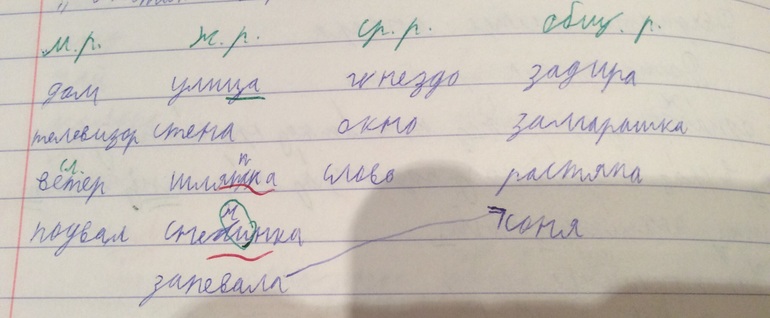 м.р. ж.р. ср.р. общ. р.
дом улица гнездо задира
телевизор стена окно замарашка
сл. п
ветер шляпка слово растяпа
м
подвал снежинка соня
запевала